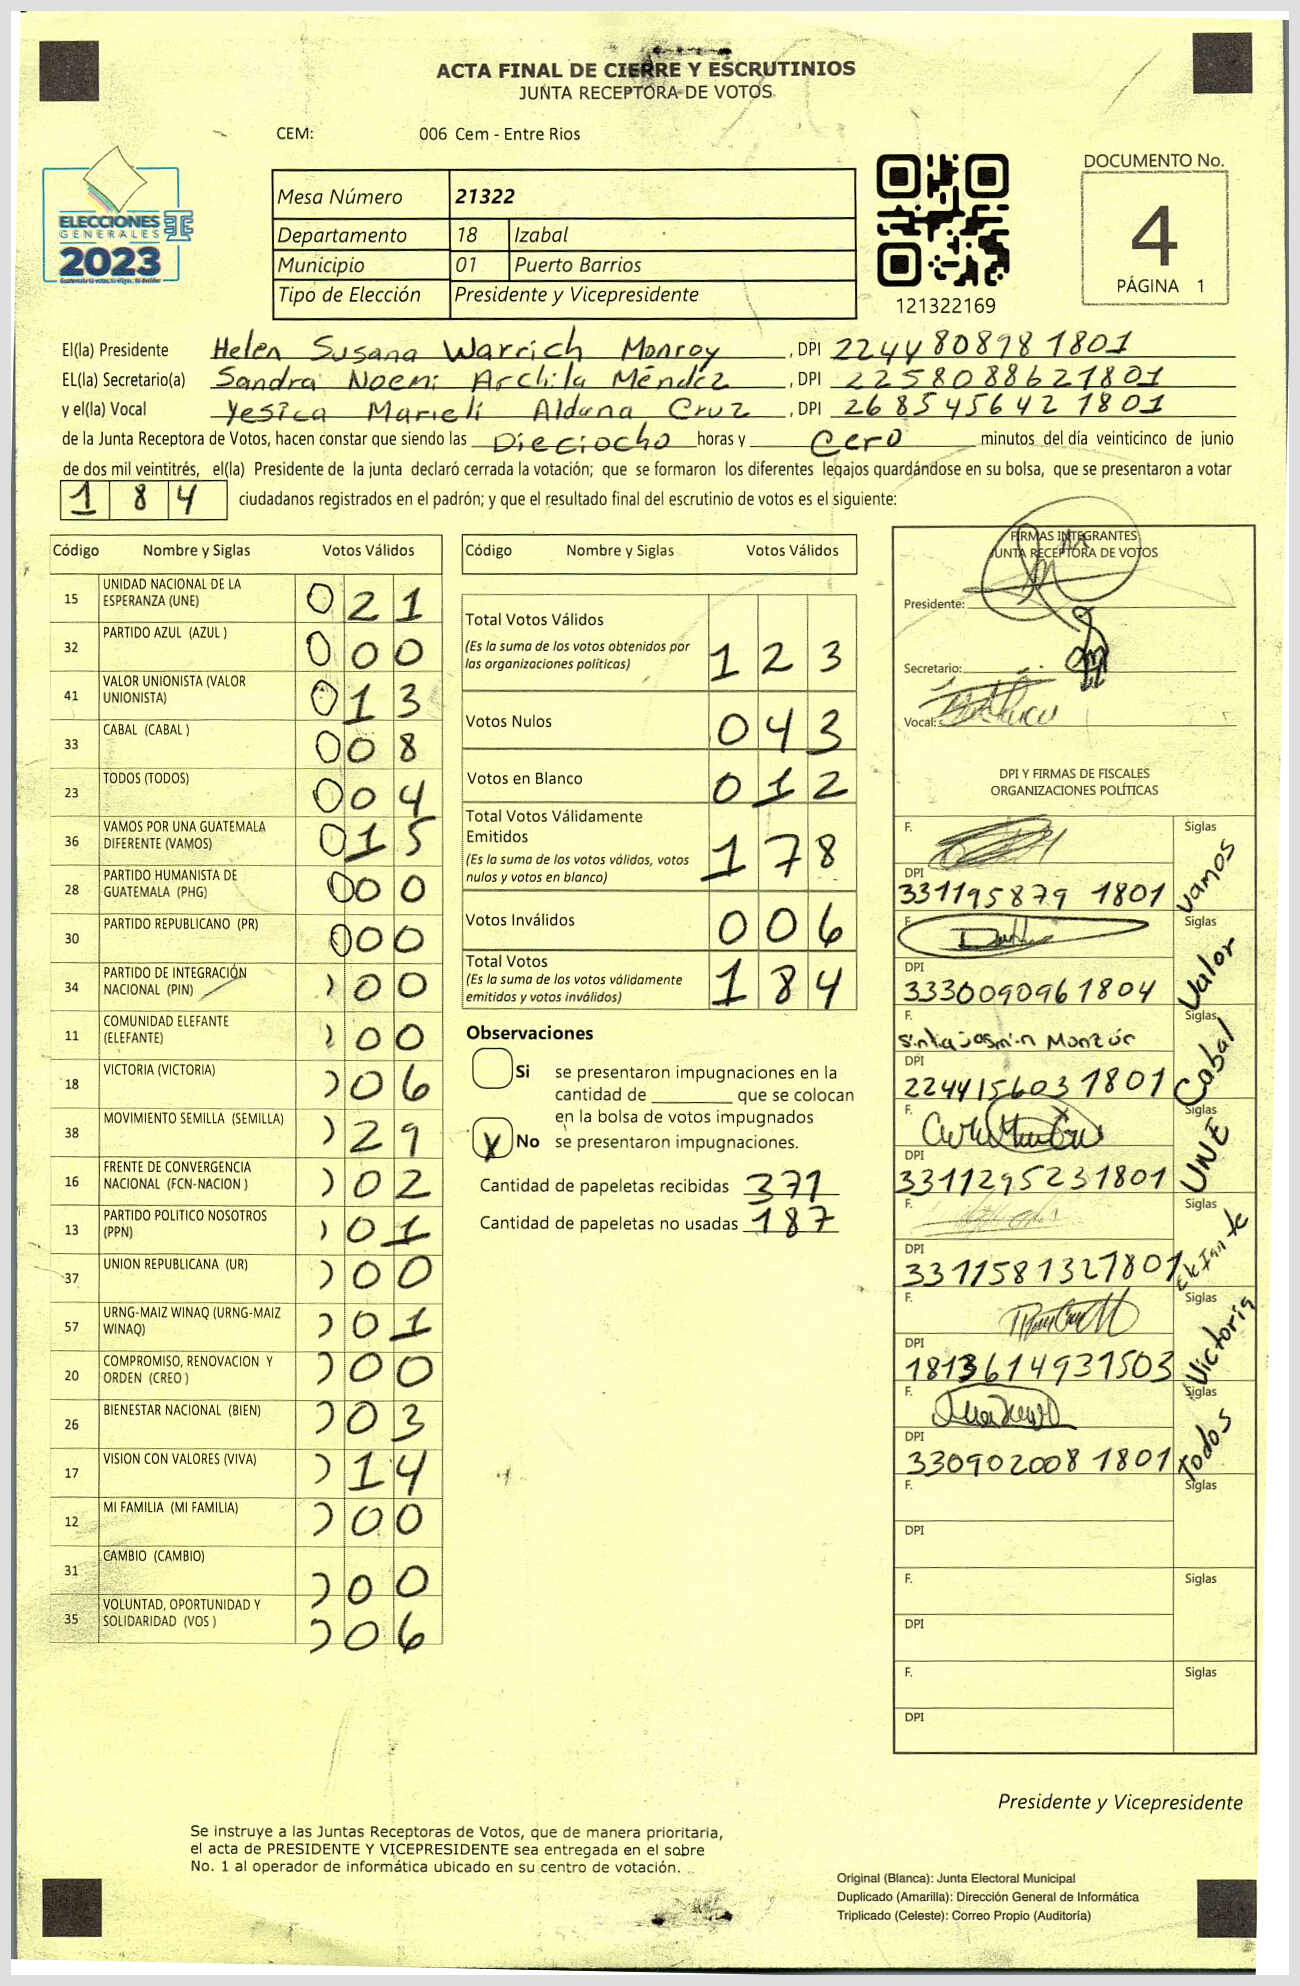 ACTA FINAL DE CIERRE Y ESCRUTINIOS
JUNTA RECEPTORA DE VOTOS
CEM: 006 Cem - Entre Rios
ELECCIONES
GENERALES
2023
Mesa Número 21322
Departamento 18 Izabal
Municipio 01 Puerto Barrios
Tipo de Elección Presidente y Vicepresidente
121322169
DOCUMENTO No.
4
PÁGINA 1
El(la) Presidente Helen Susana Warrich Monroy , DPI 2244808981801
EL(la) Secretario(a) Sandra Noemi Archila Méndez , DPI 2258088621801
y el(la) Vocal Yesica Marieli Aldana Cruz , DPI 2685456421801
de la Junta Receptora de Votos, hacen constar que siendo las Dieciocho horas y Cero minutos del día veinticinco de junio
de dos mil veintitrés, el(la) Presidente de la junta declaró cerrada la votación; que se formaron los diferentes legajos guardándose en su bolsa, que se presentaron a votar
184 ciudadanos registrados en el padrón; y que el resultado final del escrutinio de votos es el siguiente:
Código Nombre y Siglas Votos Válidos
15 UNIDAD NACIONAL DE LA ESPERANZA (UNE) 021
32 PARTIDO AZUL (AZUL ) 000
41 VALOR UNIONISTA (VALOR UNIONISTA) 013
33 CABAL (CABAL ) 008
23 TODOS (TODOS) 004
36 VAMOS POR UNA GUATEMALA DIFERENTE (VAMOS) 015
28 PARTIDO HUMANISTA DE GUATEMALA (PHG) 000
30 PARTIDO REPUBLICANO (PR) 000
34 PARTIDO DE INTEGRACIÓN NACIONAL (PIN) 00
11 COMUNIDAD ELEFANTE (ELEFANTE) 00
18 VICTORIA (VICTORIA) 06
38 MOVIMIENTO SEMILLA (SEMILLA) 29
16 FRENTE DE CONVERGENCIA NACIONAL (FCN-NACION ) 02
13 PARTIDO POLITICO NOSOTROS (PPN) 01
37 UNION REPUBLICANA (UR) 00
57 URNG-MAIZ WINAQ (URNG-MAIZ WINAQ) 01
20 COMPROMISO, RENOVACION Y ORDEN (CREO ) 00
26 BIENESTAR NACIONAL (BIEN) 03
17 VISION CON VALORES (VIVA) 14
12 MI FAMILIA (MI FAMILIA) 00
31 CAMBIO (CAMBIO) 00
35 VOLUNTAD, OPORTUNIDAD Y SOLIDARIDAD (VOS ) 06
Código Nombre y Siglas Votos Válidos
Total Votos Válidos
(Es la suma de los votos obtenidos por
las organizaciones políticas) 123
Votos Nulos 043
Votos en Blanco 012
Total Votos Válidamente
Emitidos
(Es la suma de los votos válidos, votos
nulos y votos en blanco) 178
Votos Inválidos 006
Total Votos
(Es la suma de los votos válidamente
emitidos y votos inválidos) 184
Observaciones
Si se presentaron impugnaciones en la
cantidad de ________ que se colocan
en la bolsa de votos impugnados
X No se presentaron impugnaciones.
Cantidad de papeletas recibidas 371
Cantidad de papeletas no usadas 187
FIRMAS INTEGRANTES
JUNTA RECEPTORA DE VOTOS
Presidente:
Secretario:
Vocal:
DPI Y FIRMAS DE FISCALES
ORGANIZACIONES POLÍTICAS
F. Siglas Vamos
DPI 331195879 1801
F. Siglas Valor
DPI 3330090961804
F. Sintia Josmin Monzón Siglas Cabal
DPI 2244156031801
F. Siglas UNE
DPI 3311295231801
F. Siglas Elefante
DPI 3311581321801
F. Siglas Victoria
DPI 1813614931503
F. Siglas Todos
DPI 330902008 1801
F. Siglas
DPI
F. Siglas
DPI
F. Siglas
DPI
Presidente y Vicepresidente
Se instruye a las Juntas Receptoras de Votos, que de manera prioritaria,
el acta de PRESIDENTE Y VICEPRESIDENTE sea entregada en el sobre
No. 1 al operador de informática ubicado en su centro de votación.
Original (Blanca): Junta Electoral Municipal
Duplicado (Amarilla): Dirección General de Informática
Triplicado (Celeste): Correo Propio (Auditoría)